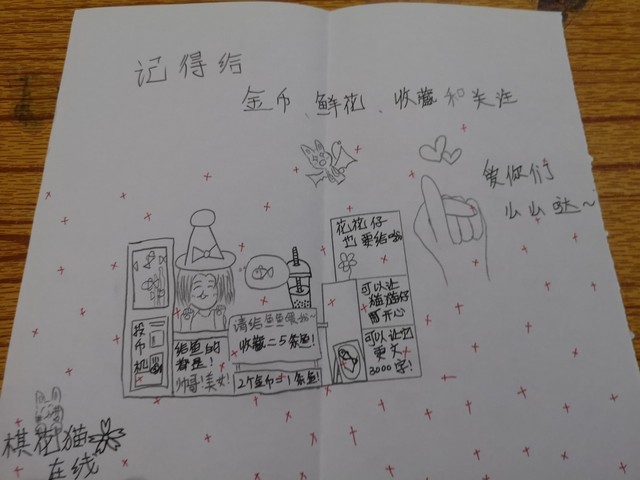 记得给
金币、鲜花、收藏和关注
爱你们
么么哒~
花花仔
也要给哦
可以让
猫猫仔
更开心
可以让它
更久
3000字!
投
币
机
给鱼的
都是!
帅哥!美女!
请给鱼鱼喂~
收藏=5条鱼!
2个金币=1条鱼!
棋花猫
在线